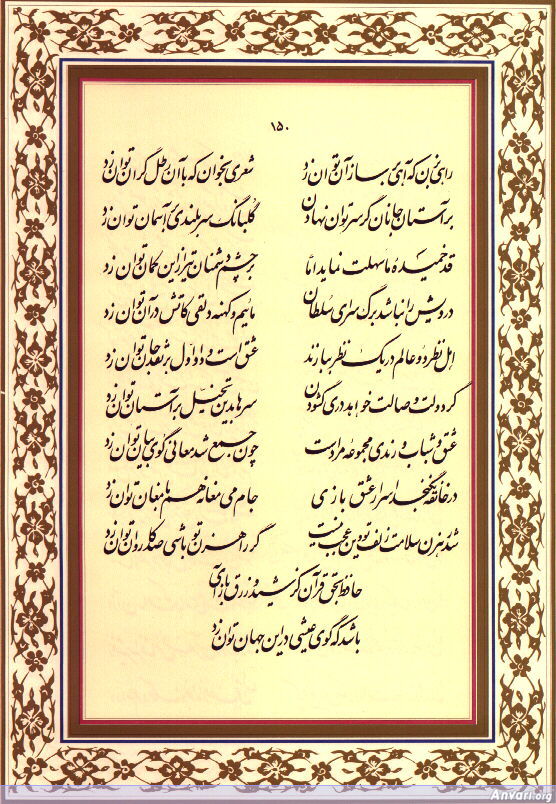 ۱۵۰
راهی بزن که آهی بر ساز آن توان زد شعری بخوان که با آن رطل گران توان زد
بر آستان جانان گر سر توان نهادن گلبانگ سربلندی بر آسمان توان زد
قد خمیده ما سهلت نماید اما بر چشم دشمنان تیر از این کمان توان زد
درویش را نباشد برگ سرای سلطان مائیم و کهنه دلقی کاتش در آن توان زد
اهل نظر دو عالم در یک نظر ببازند عشق است و داو اول بر نقد جان توان زد
گر دولت وصالت خواهد دری گشودن سرها بدین تخیل بر آستان توان زد
عشق و شباب و رندی مجموعه مراد است چون جمع شد معانی گوی بیان توان زد
در خانقه نگنجد اسرار عشق بازی جام می مغانه هم با مغان توان زد
شد رهزن سلامت زلف تو وین عجب نیست گر راهزن تو باشی صد کاروان توان زد
حافظ بحق قرآن کز شید و زرق بازآی
باشد که گوی عیشی در این جهان توان زد
Anvari.org